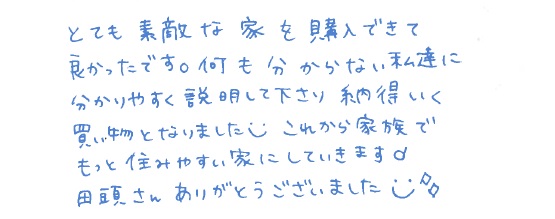 とても素敵な家を購入できて
良かったです。何も分からない私達に
分かりやすく説明して下さり納得いく
買い物となりました これから家族で
もっと住みやすい家にしていきます
田頭さんありがとうございました